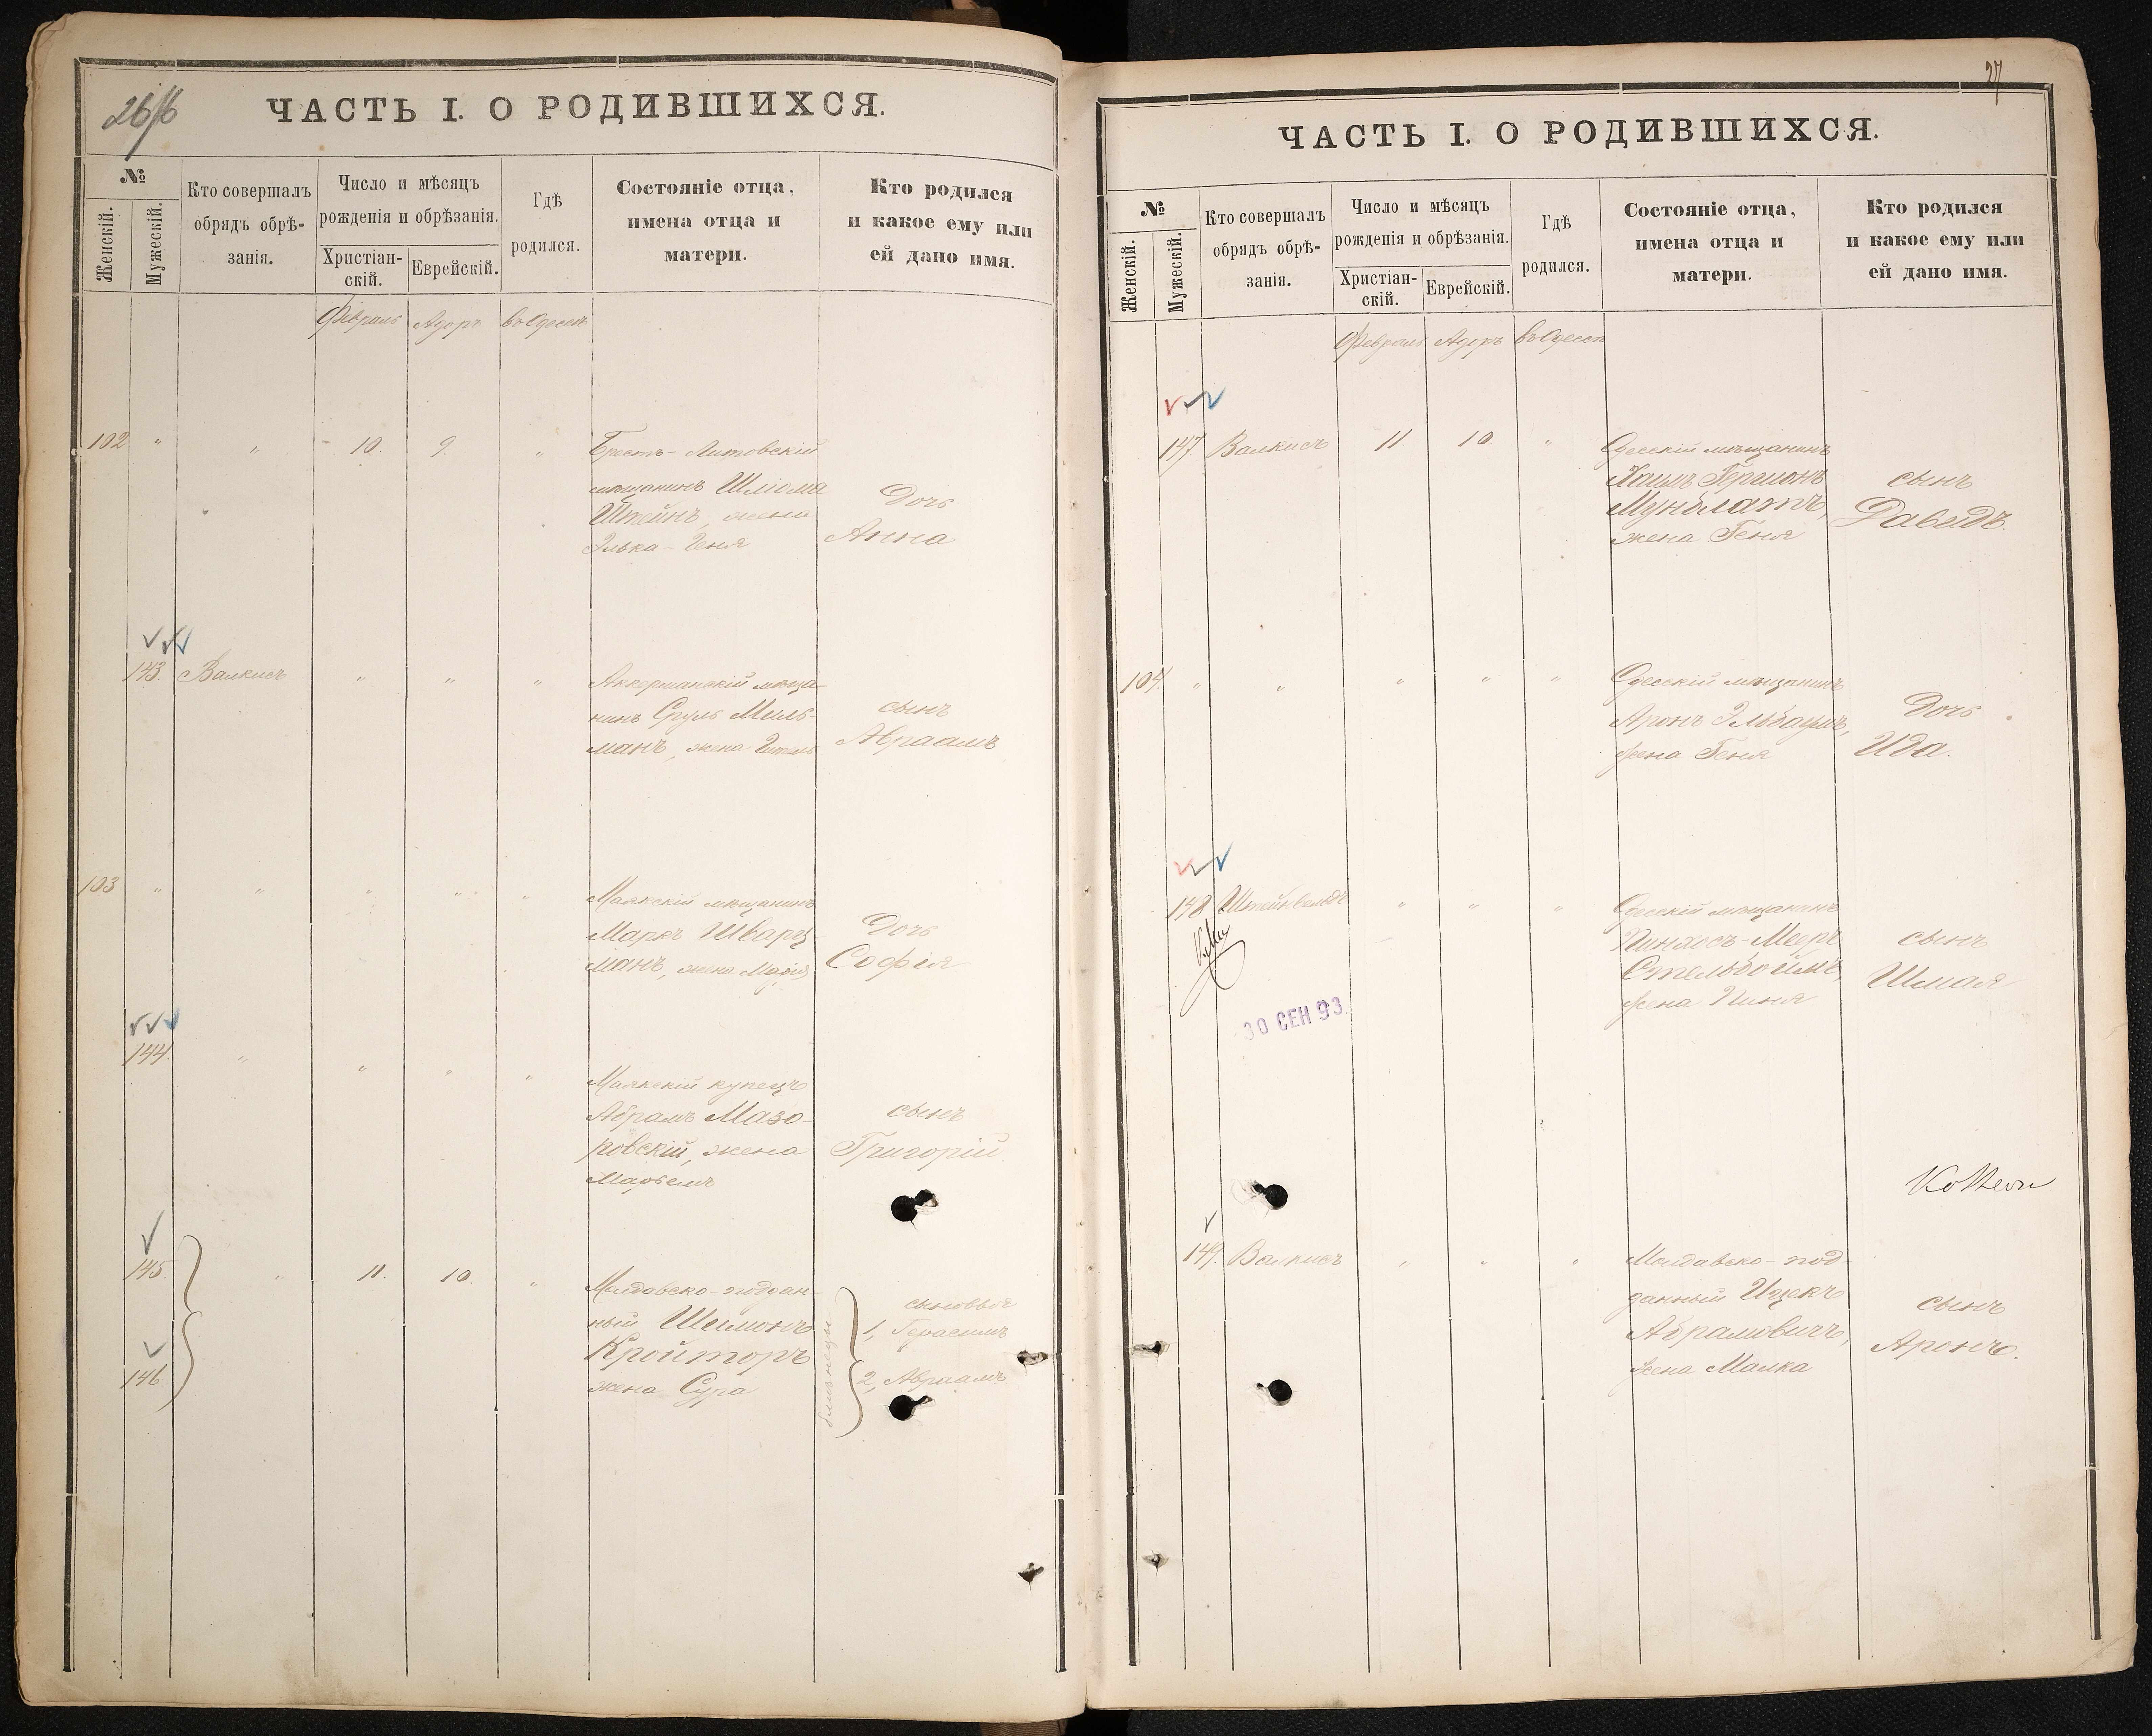 ЧАСТЬ I. О РОДИВШИХСЯ.
№
Женскій.
Мужескій.
Кто совершалъ
обрядъ обрѣ-
занія.
Число и мѣсяцъ
рожденія и обрѣзанія.
Христіан-
скій.
Еврейскій.
Гдѣ
родился.
Состояніе отца,
имена отца и
матери.
Кто родился
и какое ему или
ей дано имя.
Февраль Адоръ въ Одессѣ
102 " " 10. 9. "
Брестъ-Литовскій
мѣщанинъ Шліома
Штейнъ, жена
Элька-Геня
Дочь
Анна
143. Валкисъ " " "
Аккерманскій мѣща-
нинъ Сруль Миль-
манъ, жена
сынъ
Авраамъ
103 " " " " "
Маякскій мѣщанинъ
Маркъ Шварц-
манъ, жена Марія
Дочь
Софія
144. " " " "
Маякскій купецъ
Абрамъ Мазо-
ровскій, жена
Марьемъ
сынъ
Григорій
145.
146
" 11. 10. "
Молдавско-поддан-
ный Шеимонъ
Кройторъ
жена Сура
близнецы
сыновья
1, Герасимъ
2, Авраамъ
27
ЧАСТЬ I. О РОДИВШИХСЯ.
№
Женскій.
Мужескій.
Кто совершалъ
обрядъ обрѣ-
занія.
Число и мѣсяцъ
рожденія и обрѣзанія.
Христіан-
скій.
Еврейскій.
Гдѣ
родился.
Состояніе отца,
имена отца и
матери.
Кто родился
и какое ему или
ей дано имя.
Февраль Адоръ въ Одессѣ
147. Валкисъ 11 10. "
Одесскій мѣщанинъ
Хаимъ Гершонъ
Мунблатъ,
жена Геня
сынъ
Давидъ.
104. " " " " "
Одесскій мѣщанинъ
Аронъ Эльбаумъ,
жена Геня
Дочь
Ида.
148 Штейнвельдъ " " "
Одесскій мѣщанинъ
Пинхосъ-Мееръ
Стельбоймъ,
жена Пиня
сынъ
Шмая
30 СЕН 93
149. Валкисъ " " "
Молдавско-под-
данный Ицекъ
Абрамовичъ,
жена Малка
сынъ
Аронъ.